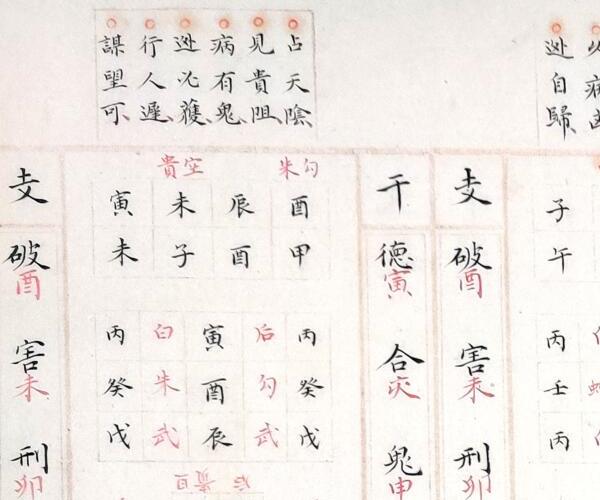 迯自歸
占天陰
見貴阻
病有鬼
迯必獲
行人遲
謀望可
子午
丙壬丙
支
破酉
害未
刑卯
干
德寅
合亥
鬼申
朱勾
貴空
酉甲
辰酉
未子
寅未
丙癸戊
后勾武
寅酉辰
白朱武
丙癸戊
支
破酉
害未
刑卯